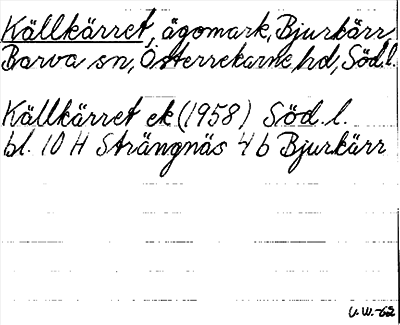 Källkärret, ägomark, Bjurkärr,
Barva sn, Österrekarne hd, Söd.l.
Källkärret ek (1958) Söd. l.
bl. 10 H Strängnäs 4 b Bjurkärr
V.W.-62